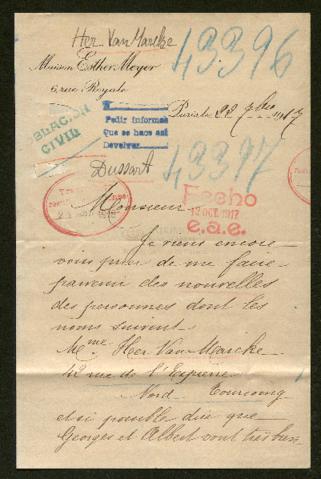 Her. Van Marcke
43396
Maison Esther Meyer
6 rue Royale
Paris le 22 7bre 1917
POBLACION
CIVIL
Pedir informes
Que se hace así
Devolver
Dussart
43397
Fecho
12 OCT. 1917
e.a.e.
Monsieur
Je viens encore
vous prier de me faire
parvenir des nouvelles
des personnes dont les
noms suivent
Mme Her Van Marcke
42 rue de l'Espierre
Nord Tourcoing
et si possible dire que
Georges et Albert vont très bien